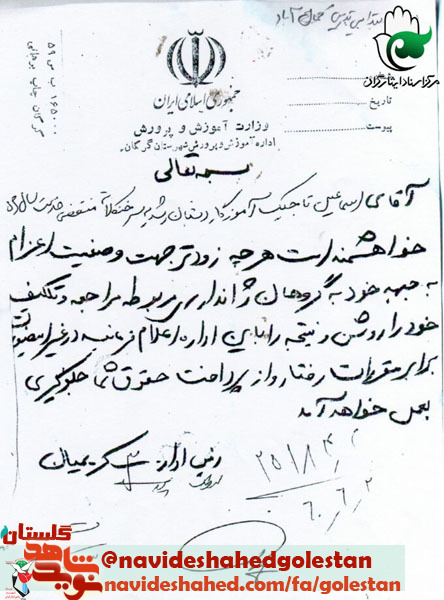 مرکز اسناد ایثارگران
جمهوری اسلامی ایران
وزارت آموزش و پرورش
اداره آموزش و پرورش شهرستان گرگان
تاریخ
پیوست
۱۶۵۰۰۰ ب س ۵۹
گرگان چاپ
بسمه تعالی
آقای اسماعیل تاجیک آموزگار دبستان
خواهشمند است هر چه زودتر جهت وضعیت اعزام
به جبهه خود به گروهان ژاندارمری مربوطه مراجعه و تکلیف
خود را روشن و نتیجه را باین اداره اعلام فرمائید در غیر اینصورت
برابر مقررات رفتار و از پرداخت حقوق شما جلوگیری
بعمل خواهد آمد
رئیس اداره کریمیان
۲۵۱۸۴
۶۰٫۶٫۲
نوید شاهد گلستان
@navideshahedgolestan
navideshahed.com/fa/golestan